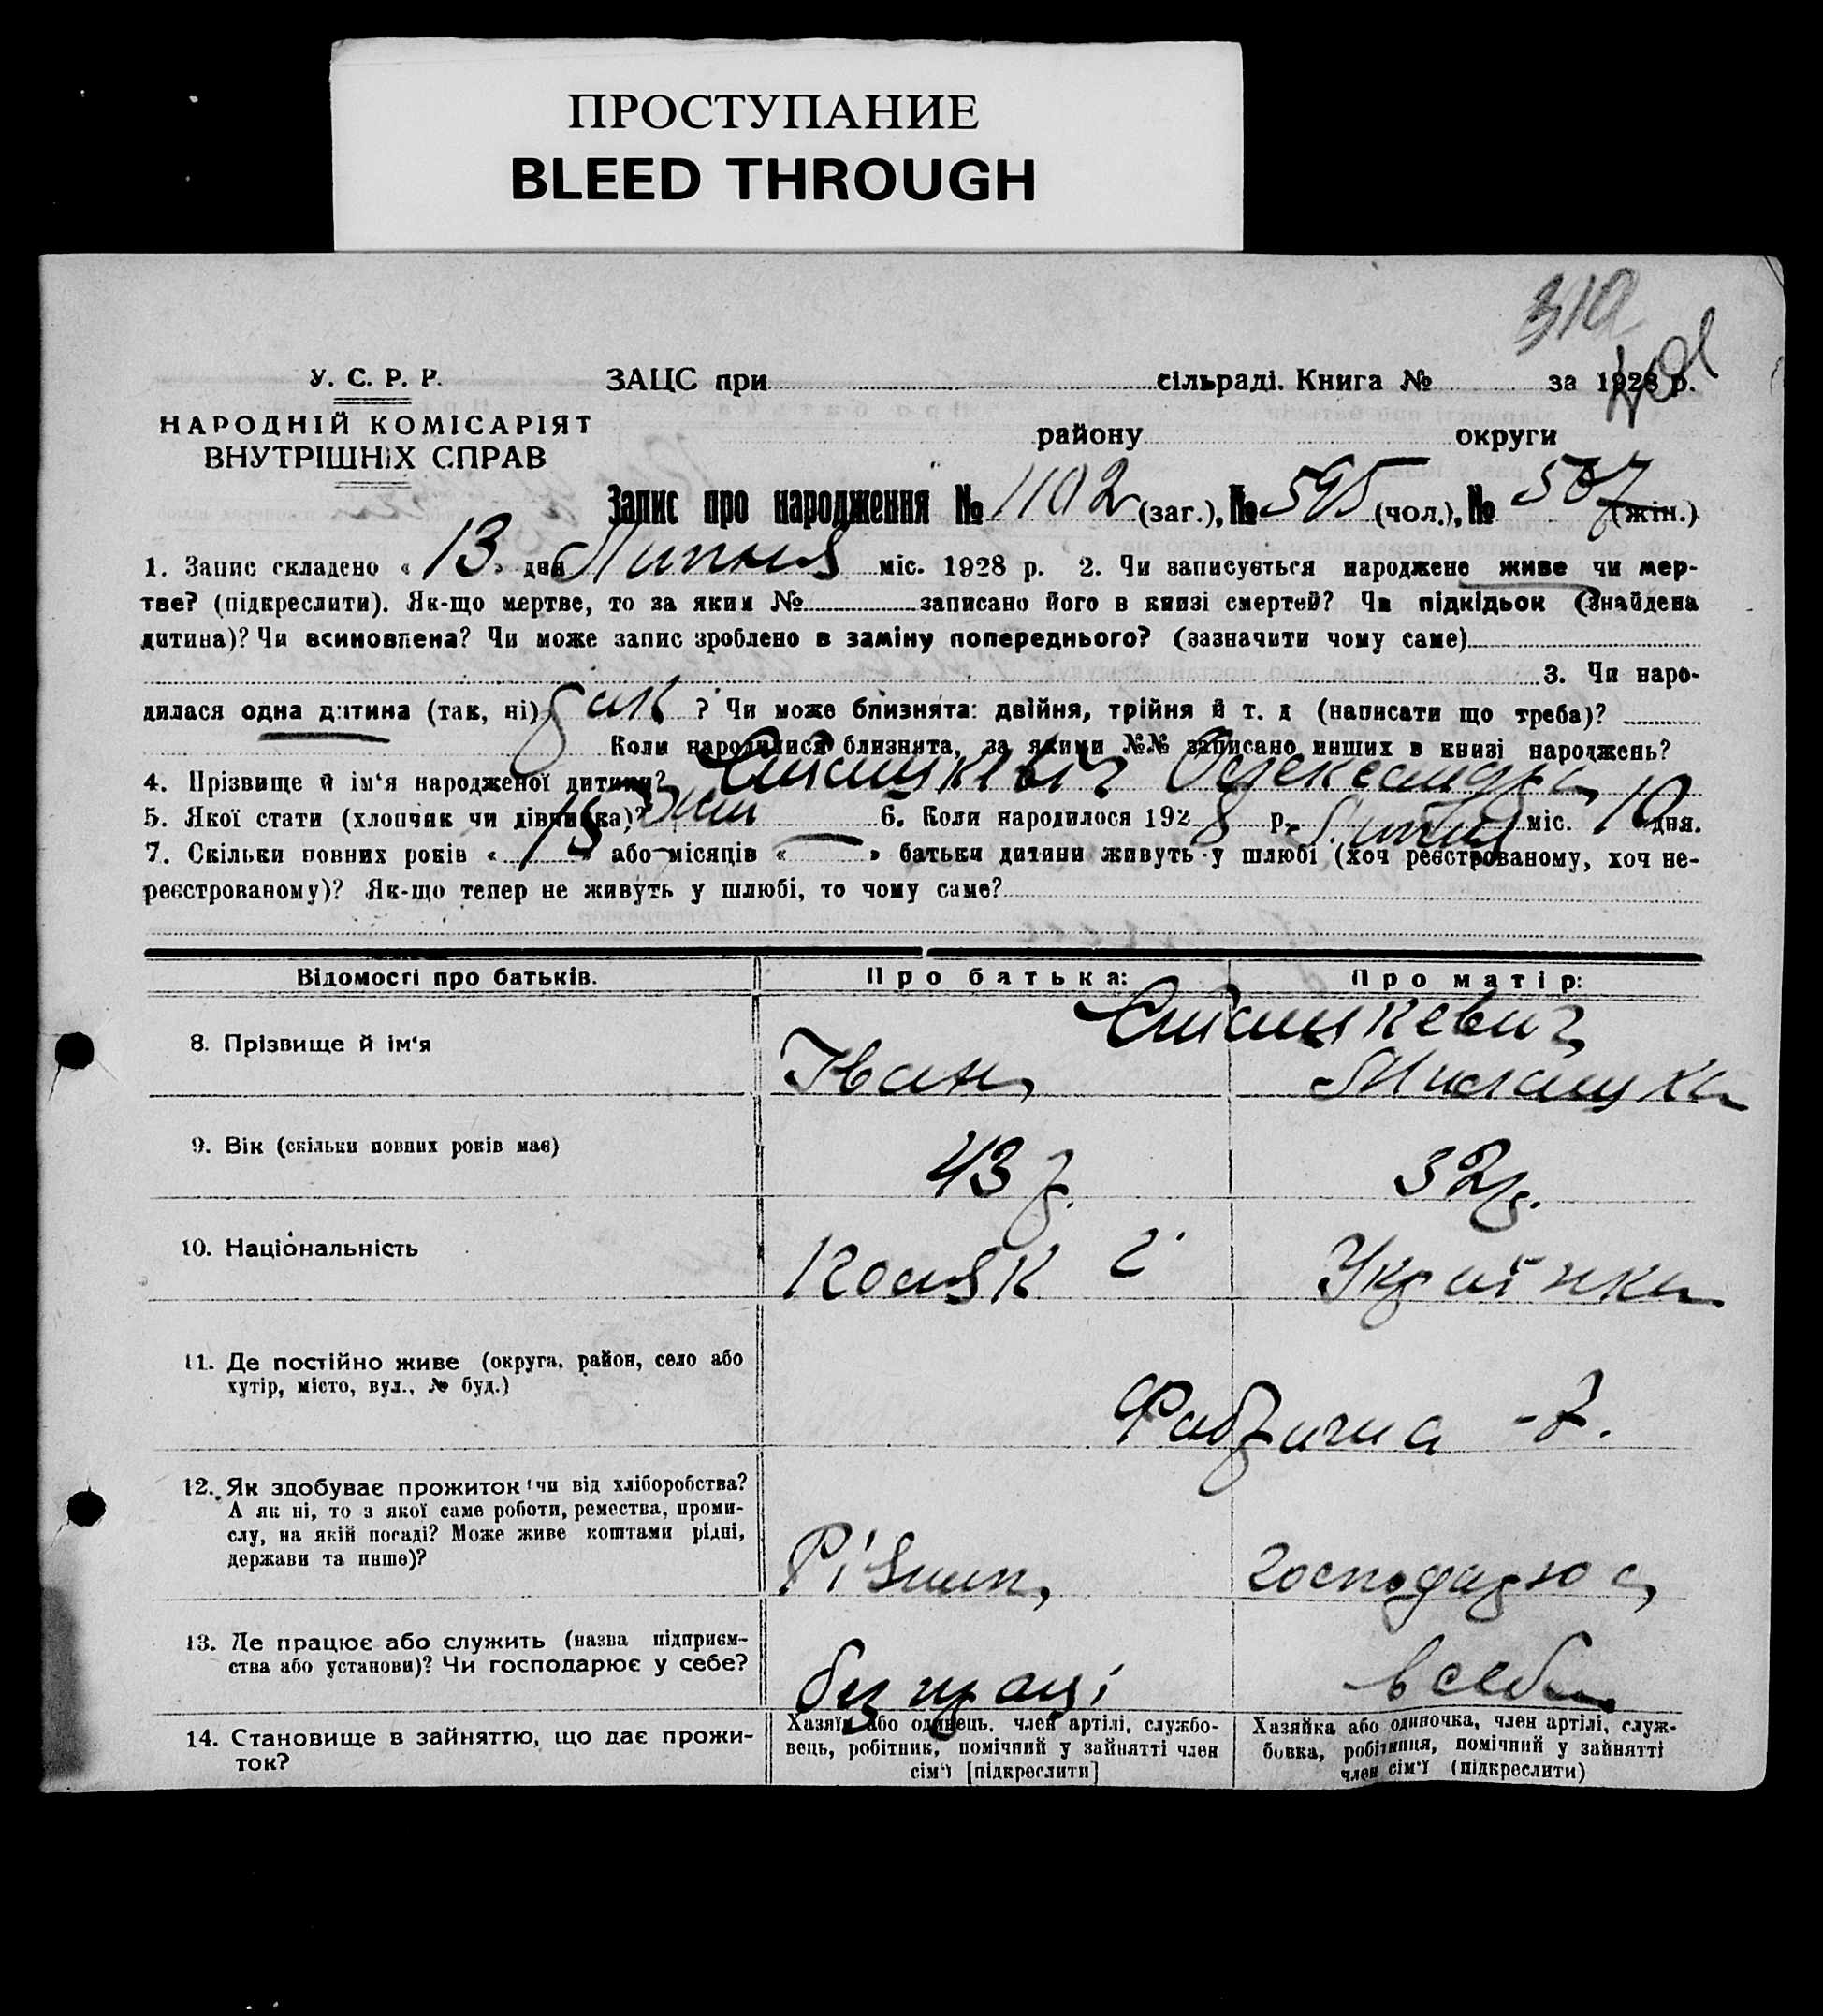 ПРОСТУПАНИЕ
BLEED THROUGH
310
У. С. Р. Р.
ЗАЦС при сільраді. Книга № за 1928 р.
НАРОДНІЙ КОМІСАРІЯТ
ВНУТРІШНІХ СПРАВ
району округи
Запис про народження № 1102 (заг.), № 595 (чол.), № 507 (жін.)
1. Запис складено « 13 » дня Липня міс. 1928 р. 2. Чи записується народжене живе чи мер-
тве? (підкреслити). Як-що мертве, то за яким № записано його в книзі смертей? Чи підкідьок (знайдена
дитина)? Чи всиновлена? Чи може запис зроблено в заміну попереднього? (зазначити чому саме)
3. Чи наро-
дилася одна дитина (так, ні) так ? Чи може близнята: двійня, трійня й т. д (написати що треба)?
Коли народилися близнята, за якими №№ записано инших в книзі народжень?
4. Прізвище й ім‘я народженої дитини? Олександр
5. Якої стати (хлопчик чи дівчинка)? 6. Коли народилося 192 8 р. Липня міс. 10 дня.
7. Скільки повних років « 15 » або місяців « — » батьки дитини живуть у шлюбі (хоч реєстрованому, хоч не-
реєстрованому)? Як-що тепер не живуть у шлюбі, то чому саме?
Відомості про батьків. Про батька: Про матір:
8. Прізвище й ім‘я
Іван
9. Вік (скільки повних років має) 43 р. 32 р.
10. Національність
Українка
11. Де постійно живе (округа, район, село або
хутір, місто, вул., № буд.)
Фабрична - 7.
12. Як здобуває прожиток (чи від хліборобства?
А як ні, то з якої саме роботи, ремества, проми-
слу, на якій посаді? Може живе коштами рідні,
держави та инше)?
господарює
13. Де працює або служить (назва підприєм-
ства або установи)? Чи господарює у себе?
без праці в себе
14. Становище в зайняттю, що дає прожи-
ток?
Хазяїн або одинець, член артілі, службо-
вець, робітник, помічний у зайнятті член
сім‘ї [підкреслити]
Хазяйка або одиночка, член артілі, служ-
бовка, робітниця, помічний у зайнятті
член сім‘ї (підкреслити)